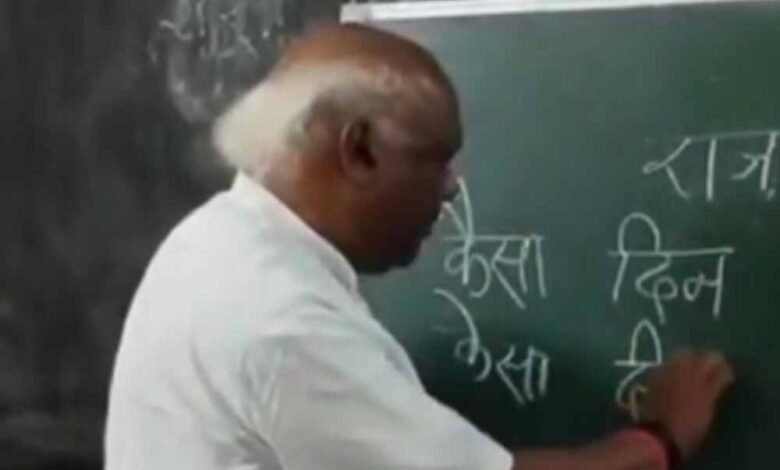 राज
कैसा दिन
केसा दी